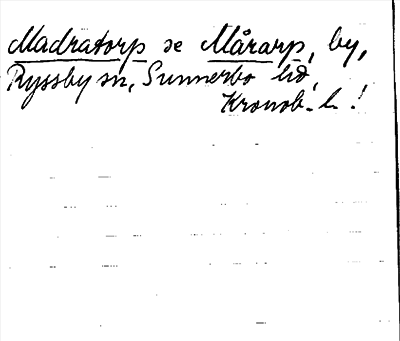 Madratorp se Mårarp, by,
Ryssby sn, Sunnerbo hd,
Kronob. l. !